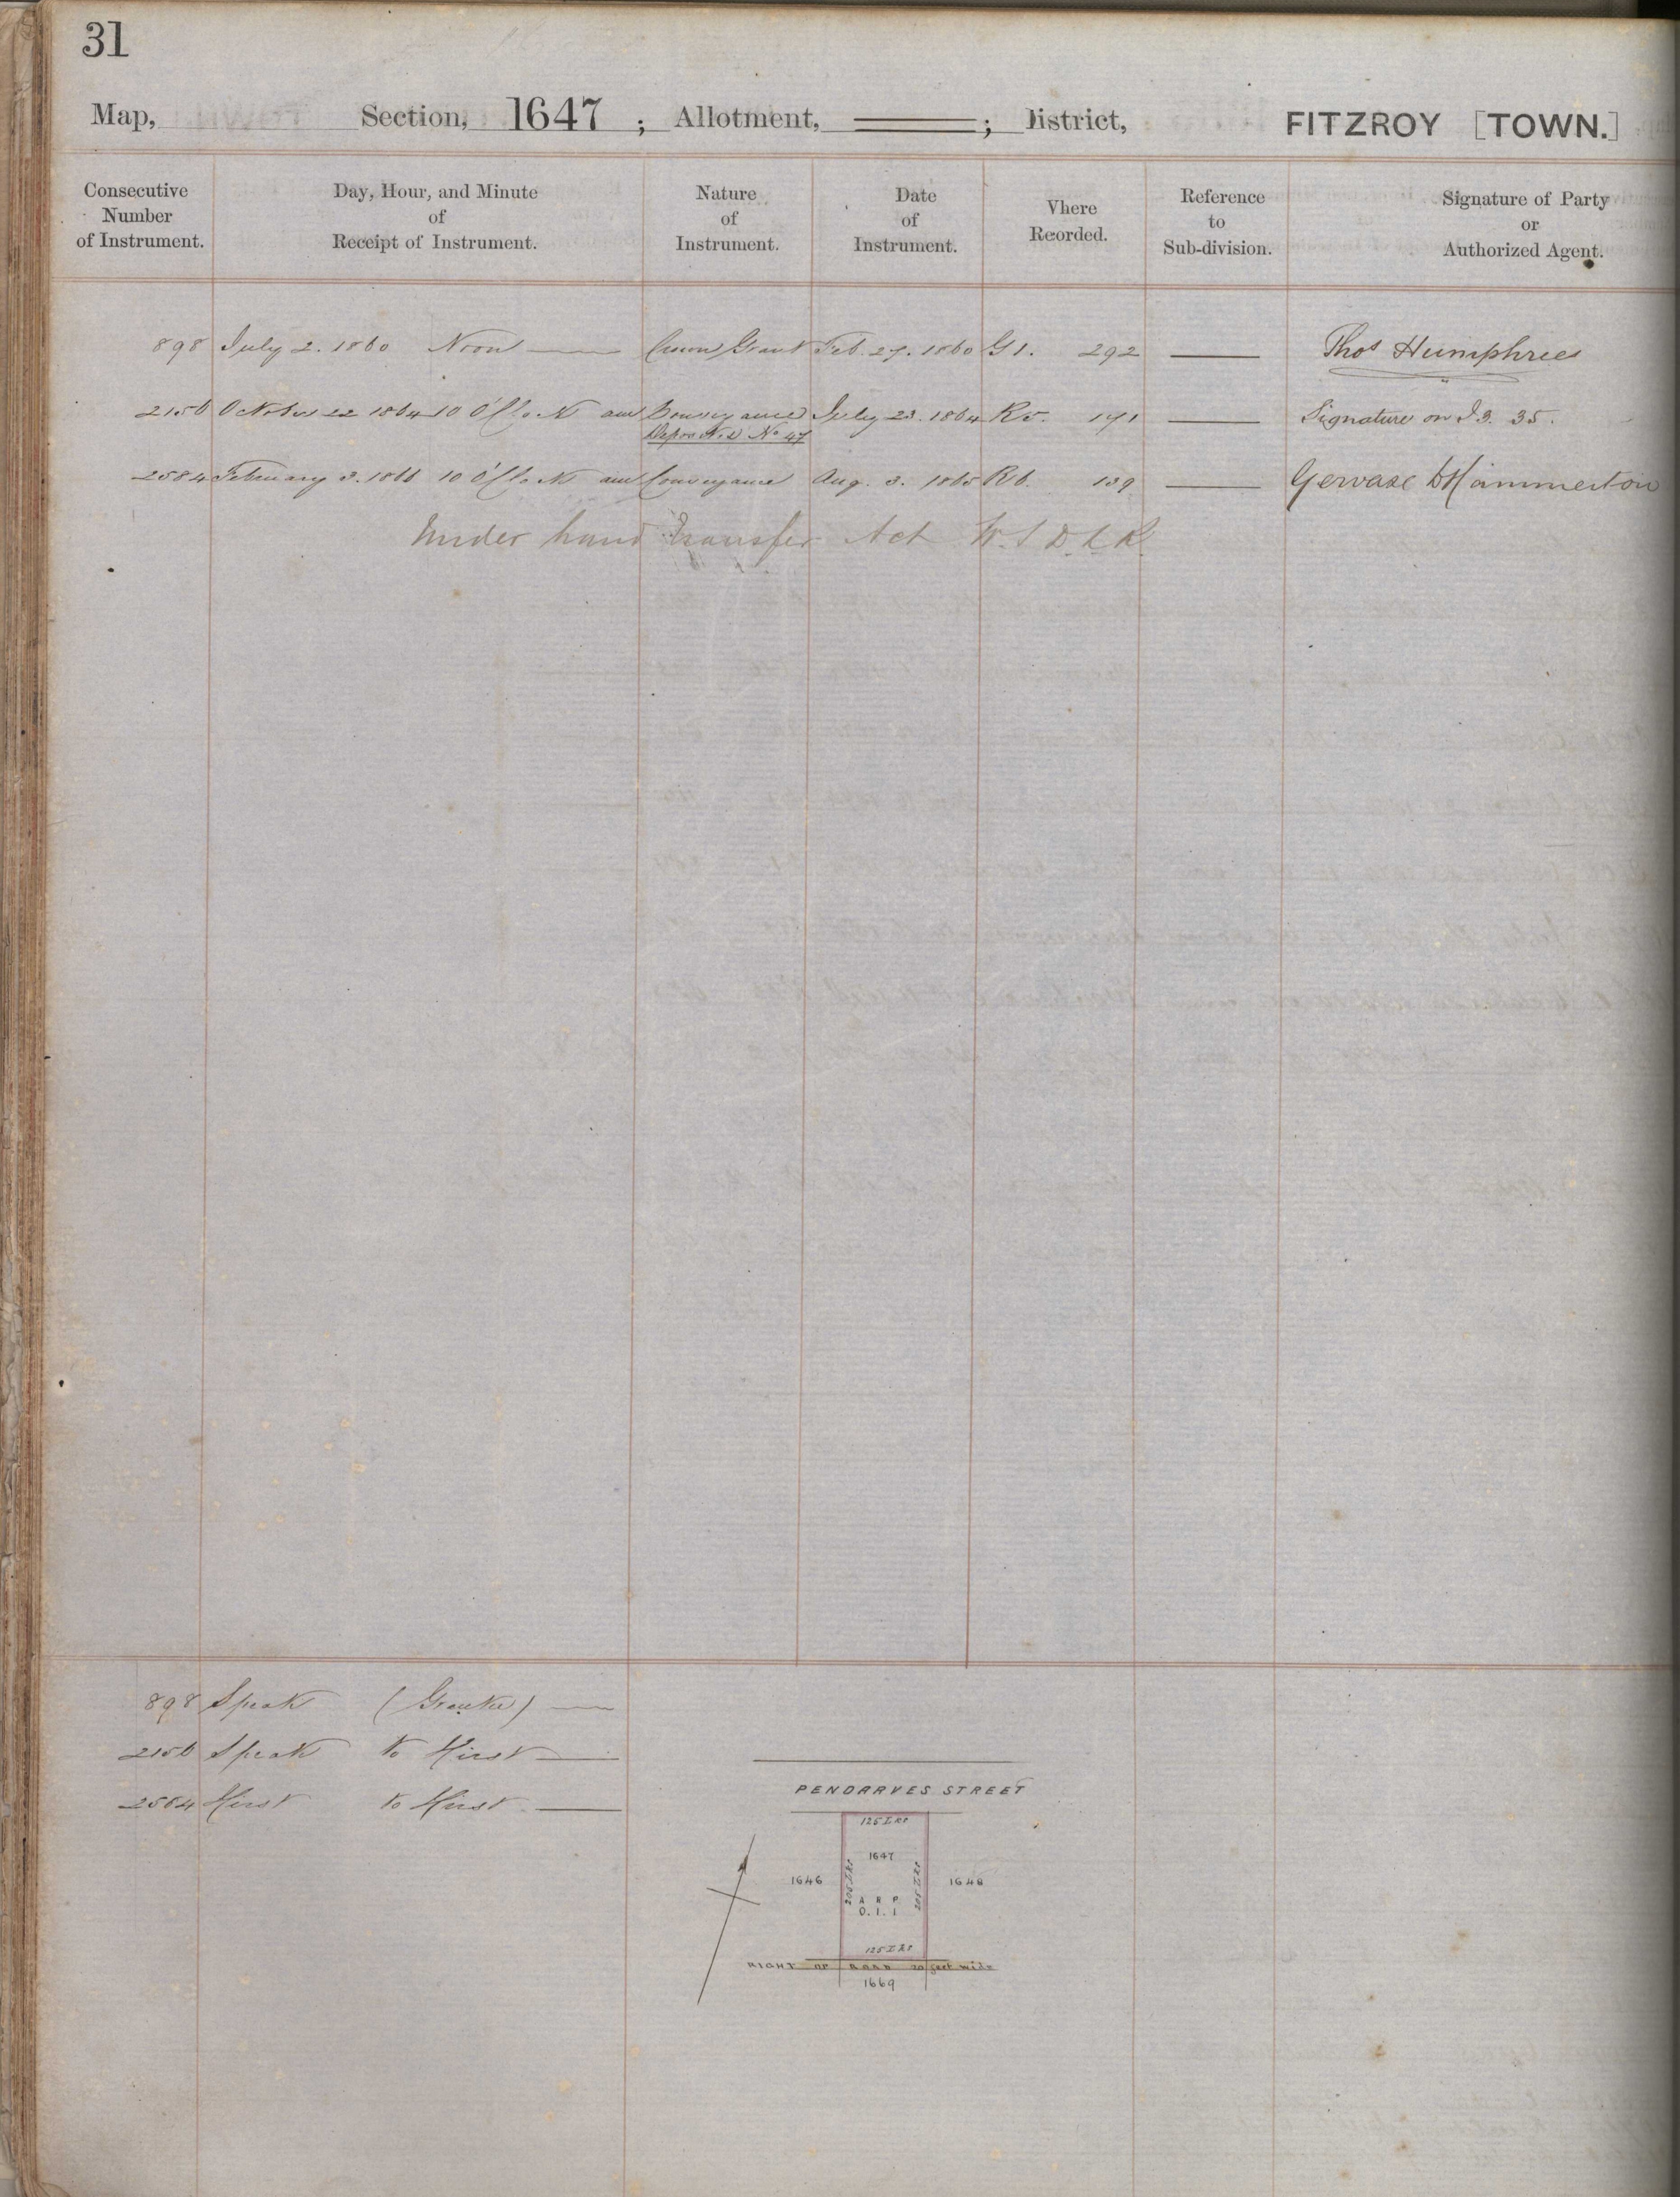 31
Map, Section, 1647 ; Allotment, ——— ; District, FITZROY [TOWN.]
Consecutive Number of Instrument.
Day, Hour, and Minute of Receipt of Instrument.
Nature of Instrument.
Date of Instrument.
Where Recorded.
Reference to Sub-division.
Signature of Party or Authorized Agent.
898 July 2. 1860 Noon —— Crown Grant Feb. 27. 1860 G 1. 292 —— Thos Humphries
2156 October 22 1864 10 O'Clock am Conveyance July 23. 1864 R 5. 171 —— Signature on I 3. 35.
Deposited No 47
2584 February 3. 1866 10 O'Clock am Conveyance Aug. 3. 1865 R 6. 139 —— Gervase D Hammerton
Under Land Transfer Act
898 Speak (Grantee) ——
2156 Speak to Hirst ——
2584 Hirst to Hirst ——
PENDARVES STREET
125 LKS
1647
1646
205 LKS
205 LKS
1648
A R P
0. 1. 1
125 LKS
RIGHT OF ROAD 20 feet wide
1669